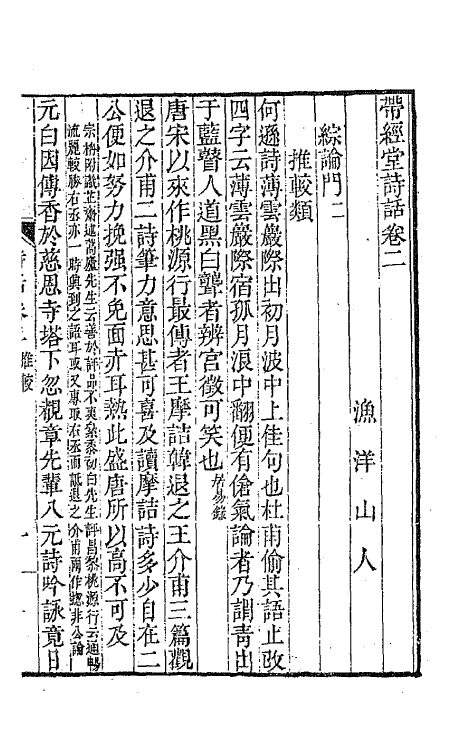 帶經堂詩話卷二
漁洋山人
綜論門二
推較類
何遜詩薄雲巖際出初月波中上佳句也杜甫偷其語止改
四字云薄雲巖際宿孤月浪中翻便有傖氣論者乃謂青出
于藍瞽人道黑白聾者辨宮徵可笑也居易錄
唐宋以來作桃源行最傳者王摩詰韓退之王介甫三篇觀
退之介甫二詩筆力意思甚可喜及讀摩詰詩多少自在二
公便如努力挽强不免面赤耳熱此盛唐所以高不可及
宗柟附識芷齋述蒿廬先生云善於評品不爽絫黍初白先生評昌黎桃源行云通暢
流麗較勝右丞亦一時興到之語耳或又專取右丞而詆退之介甫兩作摠非公論
元白因傳香於慈恩寺塔下忽覩章先輩八元詩吟詠竟日
推較